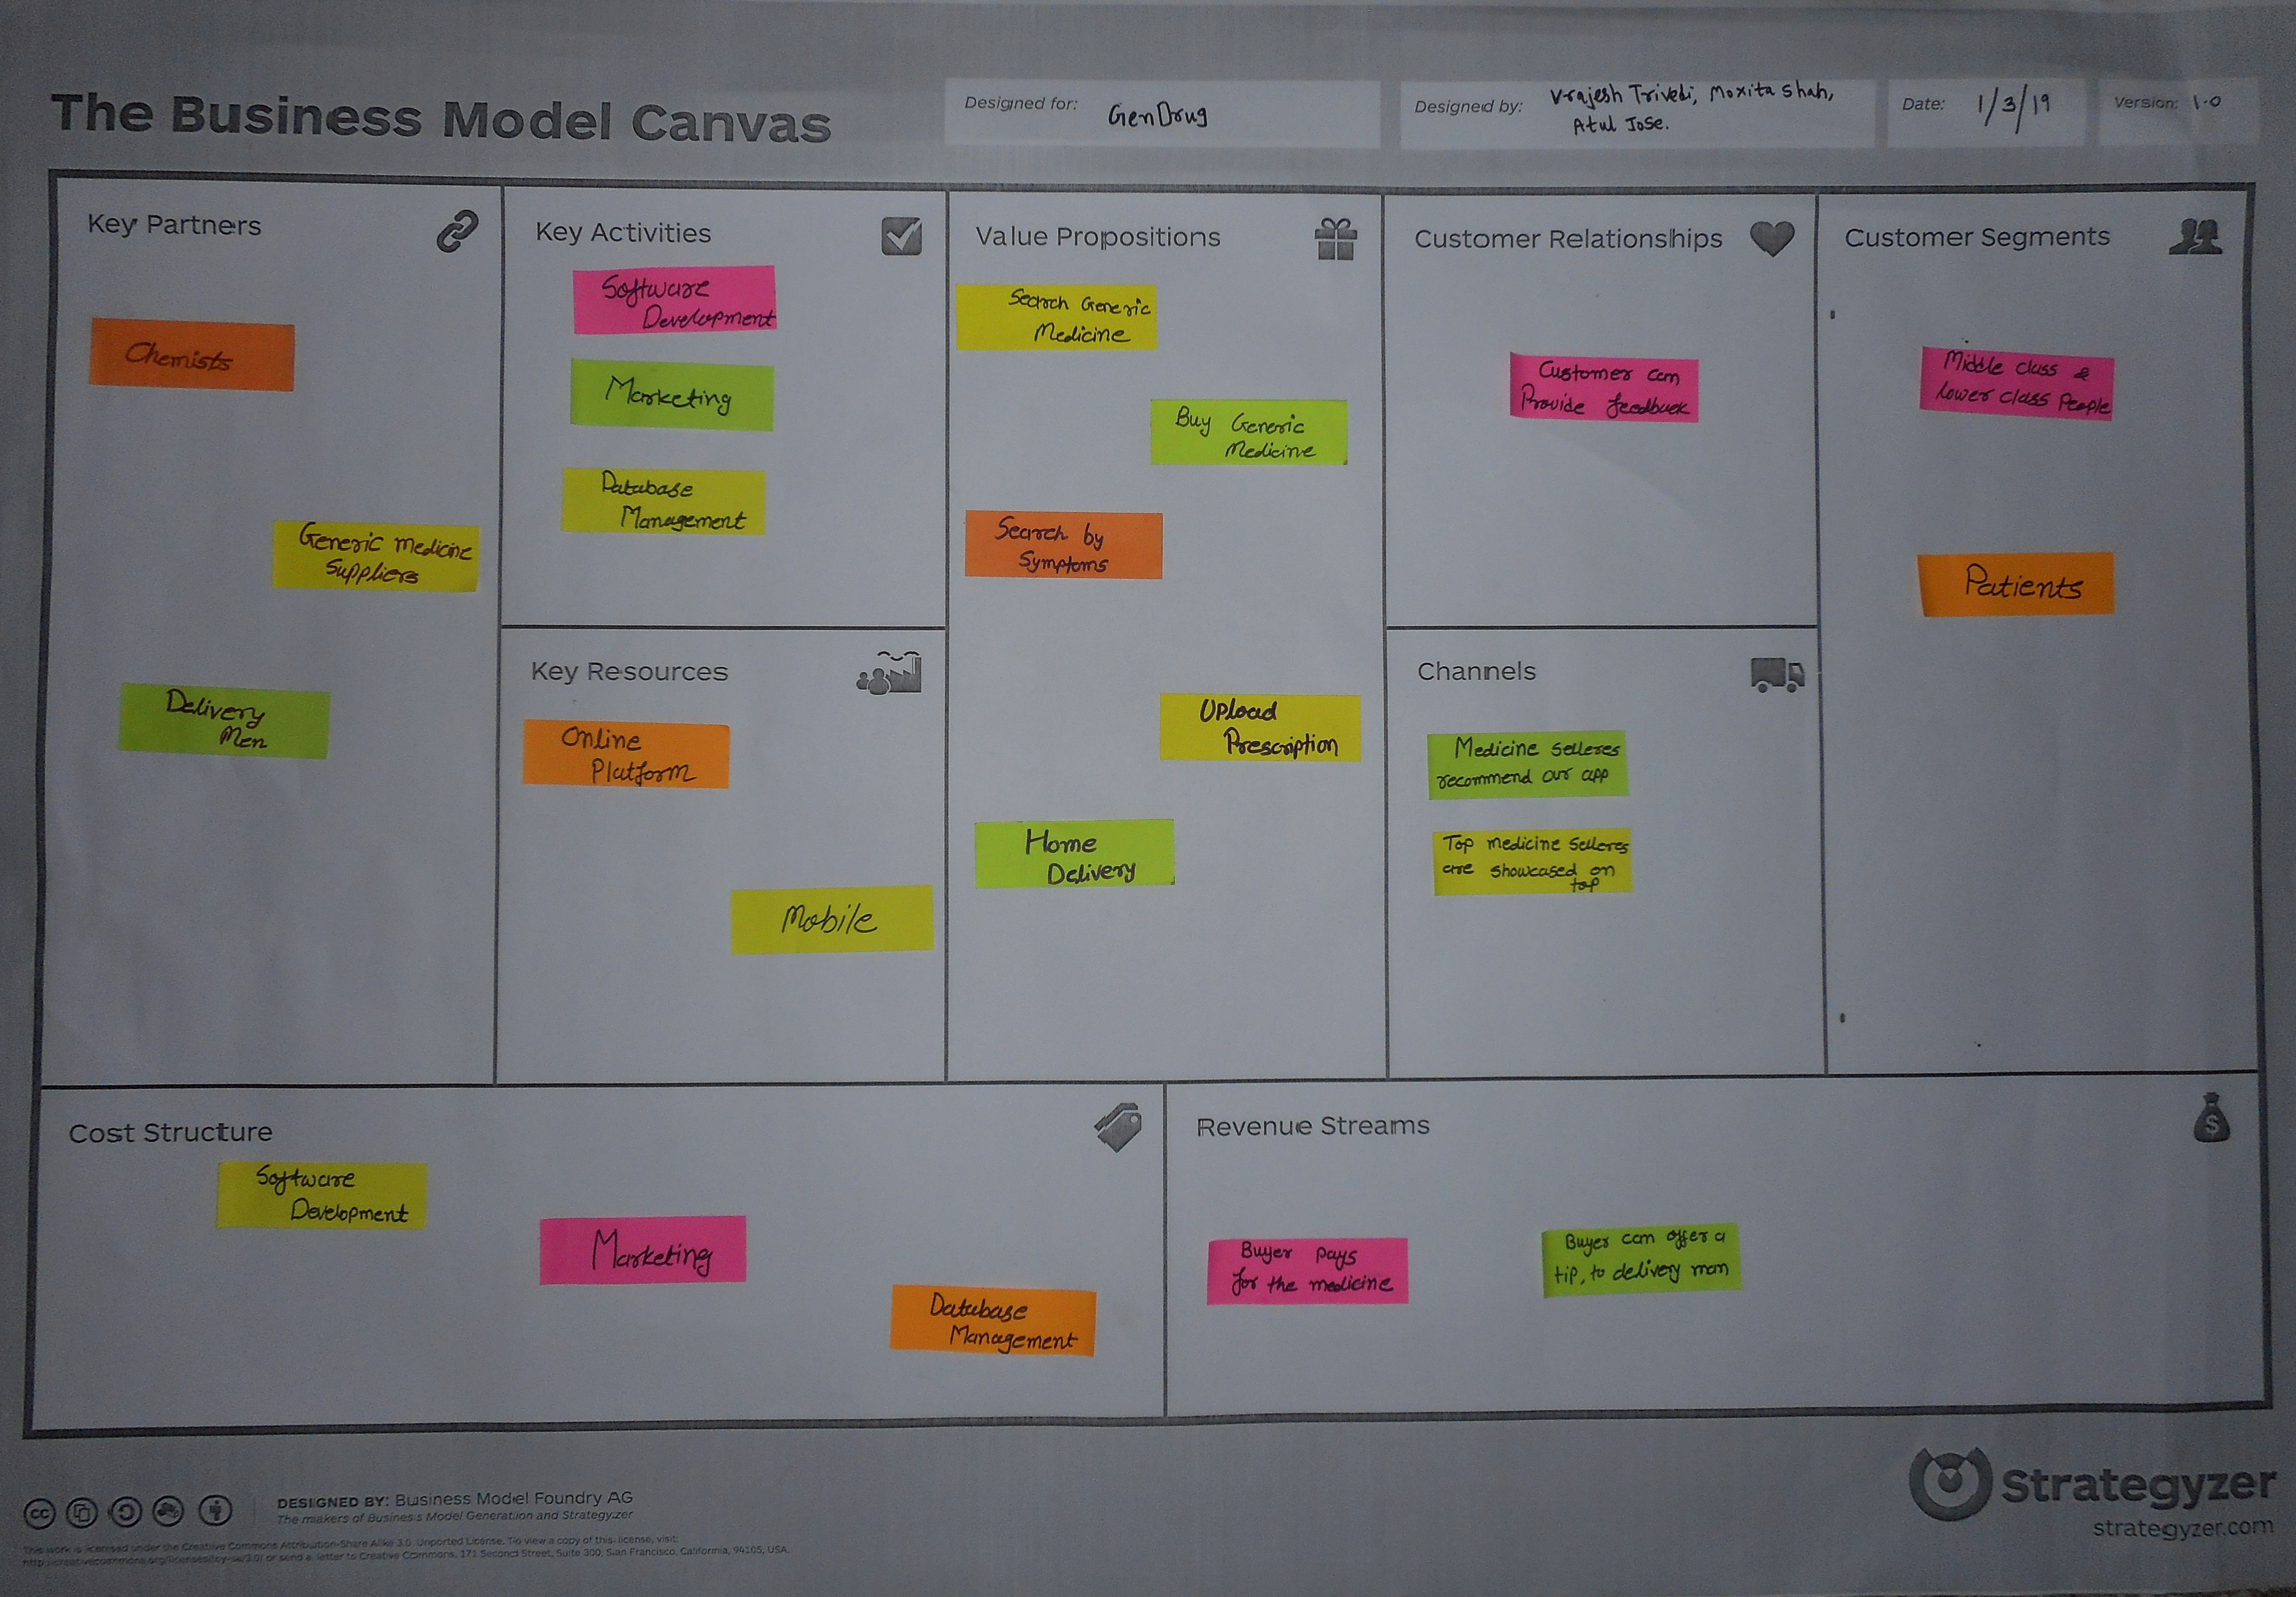 The Business Model Canvas
Designed for:
GenDrug
Designed by:
Vrajesh Trivedi, Moxita Shah,
Atul Jose.
Date:
1/3/19
Version: 1.0
Key Partners
Chemists
Generic medicine
Suppliers
Delivery
Men
Key Activities
Software
Development
Marketing
Database
Management
Key Resources
Online
Platform
Mobile
Value Propositions
Search Generic
Medicine
Buy Generic
Medicine
Search by
Symptoms
Upload
Prescription
Home
Delivery
Customer Relationships
Customer can
Provide feedback
Channels
Medicine selleres
recommend our app
Top medicine selleres
are showcased on
top
Customer Segments
Middle class &
lower class People
Patients
Cost Structure
Software
Development
Marketing
Database
Management
Revenue Streams
$
Buyer pays
for the medicine
Buyer can offer a
tip, to delivery man
cc
DESIGNED BY: Business Model Foundry AG
The makers of Business Model Generation and Strategyzer
This work is licensed under the Creative Commons Attribution-Share Alike 3.0 Unported License. To view a copy of this license, visit:
http://creativecommons.org/licenses/by-sa/3.0/ or send a letter to Creative Commons, 171 Second Street, Suite 300, San Francisco, California, 94105, USA.
Strategyzer
strategyzer.com